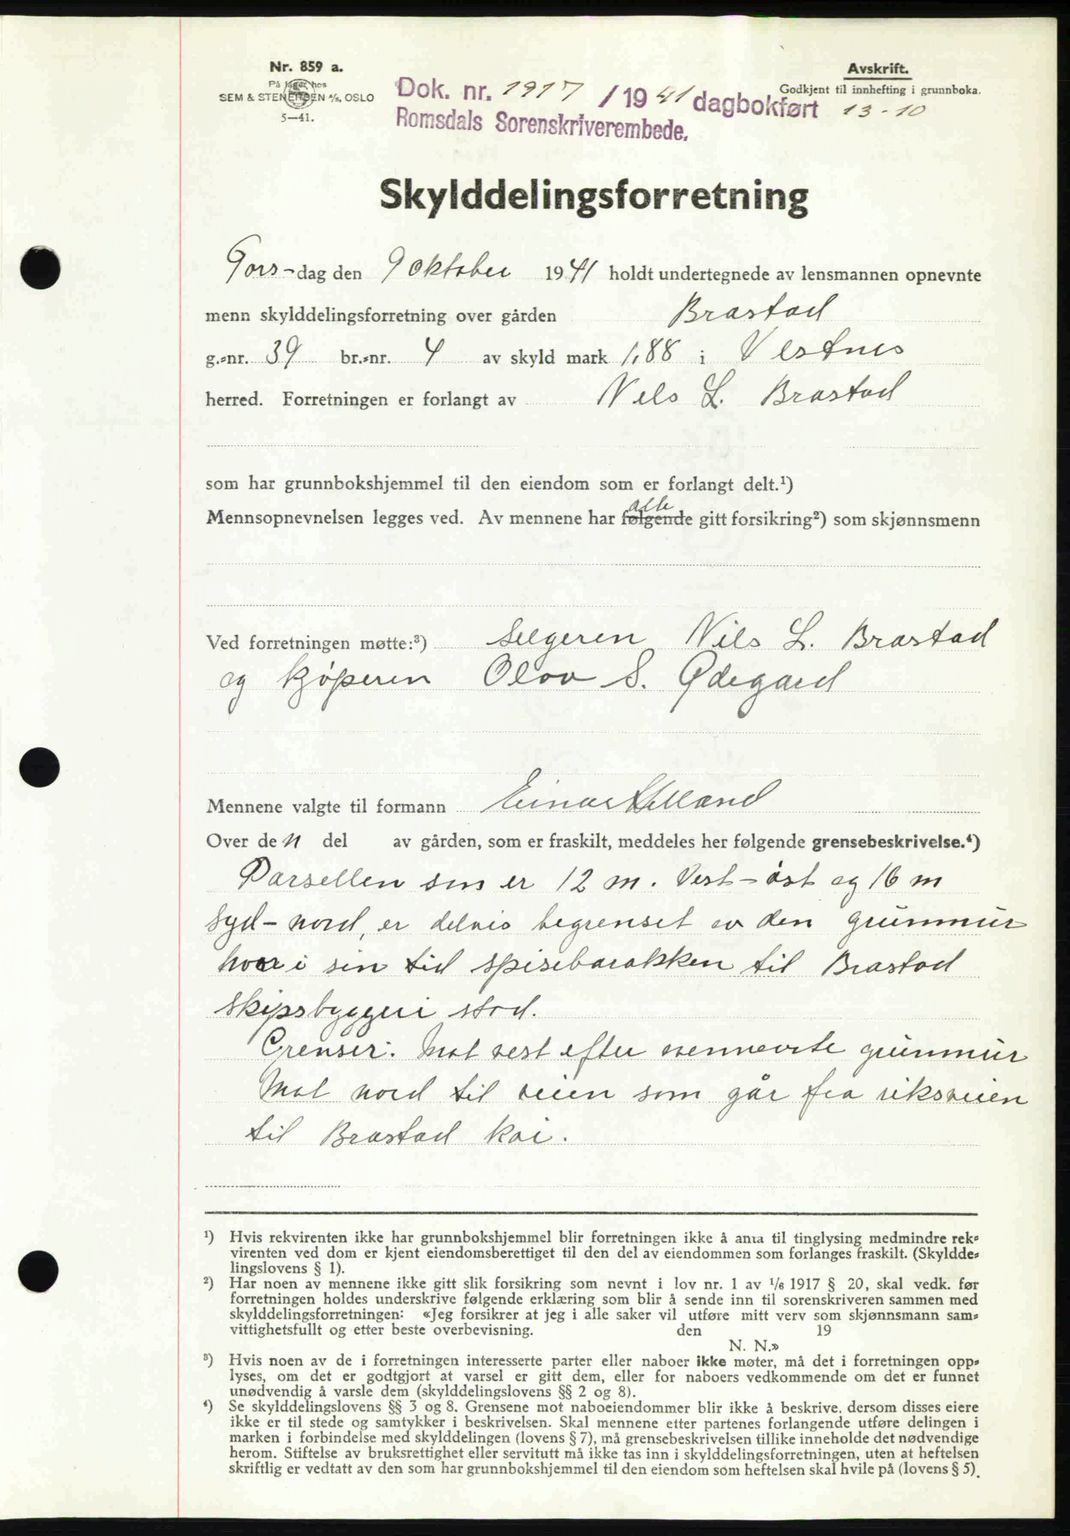 Nr. 859 a.
På lager hos
SEM & STENERSEN A/S, OSLO
5—41.
Avskrift.
Godkjent til innhefting i grunnboka.
Dok. nr. 1917 / 19 41 dagbokført 13-10
Romsdals Sorenskriverembede.
Skylddelingsforretning
Tors-dag den 9 oktober 1941 holdt undertegnede av lensmannen opnevnte
menn skylddelingsforretning over gården Brastad
g.-nr. 39 br.-nr. 4 av skyld mark 1,88 i Vestnes
herred. Forretningen er forlangt av Nils L. Brastad
som har grunnbokshjemmel til den eiendom som er forlangt delt.¹)
alle
Mennsopnevnelsen legges ved. Av mennene har følgende gitt forsikring²) som skjønnsmenn
Ved forretningen møtte:³) Selgeren Nils L. Brastad
og kjøperen Olav S. Ødegard
Mennene valgte til formann Einar Helland
Over den del av gården, som er fraskilt, meddeles her følgende grensebeskrivelse.⁴)
Parsellen som er 12 m. Vest-øst og 16 m
syd-nord, er delvis begrenset av den grunnmur
hvor i sin tid spisebarakken til Brastad
skipsbyggeri stod.
Grenser: Mot vest efter nevnte grunnmur
Mot nord til veien som går fra riksveien
til Brastad kai.
¹) Hvis rekvirenten ikke har grunnbokshjemmel blir forretningen ikke å anta til tinglysing medmindre rek-
virenten ved dom er kjent eiendomsberettiget til den del av eiendommen som forlanges fraskilt. (Skyldde-
lingslovens § 1).
²) Har noen av mennene ikke gitt slik forsikring som nevnt i lov nr. 1 av 1/6 1917 § 20, skal vedk. før
forretningen holdes underskrive følgende erklæring som blir å sende inn til sorenskriveren sammen med
skylddelingsforretningen: «Jeg forsikrer at jeg i alle saker vil utføre mitt verv som skjønnsmann sam-
vittighetsfullt og etter beste overbevisning. den 19
N. N.»
³) Hvis noen av de i forretningen interesserte parter eller naboer ikke møter, må det i forretningen opp-
lyses, om det er godtgjort at varsel er gitt dem, eller for naboers vedkommende om det er funnet
unødvendig å varsle dem (skylddelingslovens §§ 2 og 8).
⁴) Se skylddelingslovens §§ 3 og 8. Grensene mot naboeiendommer blir ikke å beskrive, dersom disses eiere
ikke er til stede og samtykker i beskrivelsen. Skal mennene etter partenes forlangende utføre delingen i
marken i forbindelse med skylddelingen (lovens § 7), må grensebeskrivelsen tillike inneholde det nødvendige
herom. Stiftelse av bruksrettighet eller servitutt må ikke tas inn i skylddelingsforretningen, uten at heftelsen
skriftlig er vedtatt av den som har grunnbokshjemmel til den eiendom som heftelsen skal hvile på (lovens § 5).